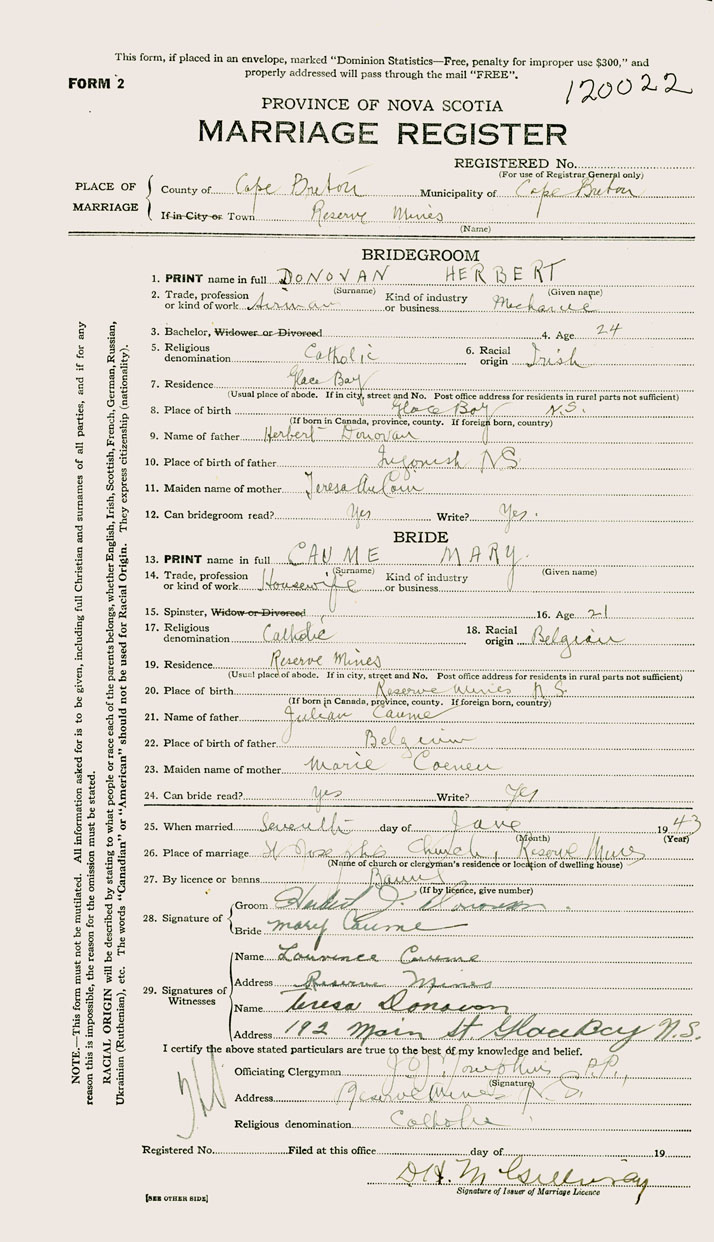 This form, if placed in an envelope, marked "Dominion Statistics—Free, penalty for improper use $300," and
properly addressed will pass through the mail "FREE".
FORM 2
120022
PROVINCE OF NOVA SCOTIA
MARRIAGE REGISTER
REGISTERED No.
(For use of Registrar General only)
PLACE OF MARRIAGE
County of Cape Breton Municipality of Cape Breton
If in City or Town Reserve Mines
(Name)
BRIDEGROOM
1. PRINT name in full DONOVAN HERBERT
(Surname) (Given name)
2. Trade, profession or kind of work Airman Kind of industry or business Mechanic
3. Bachelor, Widower or Divorced 4. Age 24
5. Religious denomination Catholic 6. Racial origin Irish
7. Residence Glace Bay
(Usual place of abode. If in city, street and No. Post office address for residents in rural parts not sufficient)
8. Place of birth Glace Bay N.S.
(If born in Canada, province, county. If foreign born, country)
9. Name of father Herbert Donovan
10. Place of birth of father Ingonish NS
11. Maiden name of mother Teresa AuCoin
12. Can bridegroom read? Yes Write? Yes.
BRIDE
13. PRINT name in full CAUME MARY.
(Surname) (Given name)
14. Trade, profession or kind of work Housewife Kind of industry or business
15. Spinster, Widow or Divorced 16. Age 21
17. Religious denomination Catholic 18. Racial origin Belgian
19. Residence Reserve Mines
(Usual place of abode. If in city, street and No. Post office address for residents in rural parts not sufficient)
20. Place of birth Reserve Mines N.S.
(If born in Canada, province, county. If foreign born, country)
21. Name of father Julian Caume
22. Place of birth of father Belgium
23. Maiden name of mother Marie Coenen
24. Can bride read? Yes Write? Yes
25. When married Seventh day of June 1943
(Month) (Year)
26. Place of marriage St Joseph's Church, Reserve Mines
(Name of church or clergyman's residence or location of dwelling house)
27. By licence or banns Banns
(If by licence, give number)
28. Signature of
Groom Herbert J. Donovan.
Bride Mary Caume
29. Signatures of Witnesses
Name Lawrence Caume
Address Reserve Mines
Name Teresa Donovan
Address 192 Main St. Glace Bay N.S.
I certify the above stated particulars are true to the best of my knowledge and belief.
Officiating Clergyman P.P.,
(Signature)
Address Reserve Mines N.S.
Religious denomination Catholic
Registered No. Filed at this office day of 19
Signature of Issuer of Marriage Licence
[SEE OTHER SIDE]
NOTE.—This form must not be mutilated. All information asked for is to be given, including full Christian and surnames of all parties, and if for any
reason this is impossible, the reason for the omission must be stated.
RACIAL ORIGIN will be described by stating to what people or race each of the parents belongs, whether English, Irish, Scottish, French, German, Russian,
Ukrainian (Ruthenian), etc. The words "Canadian" or "American" should not be used for Racial Origin. They express citizenship (nationality).